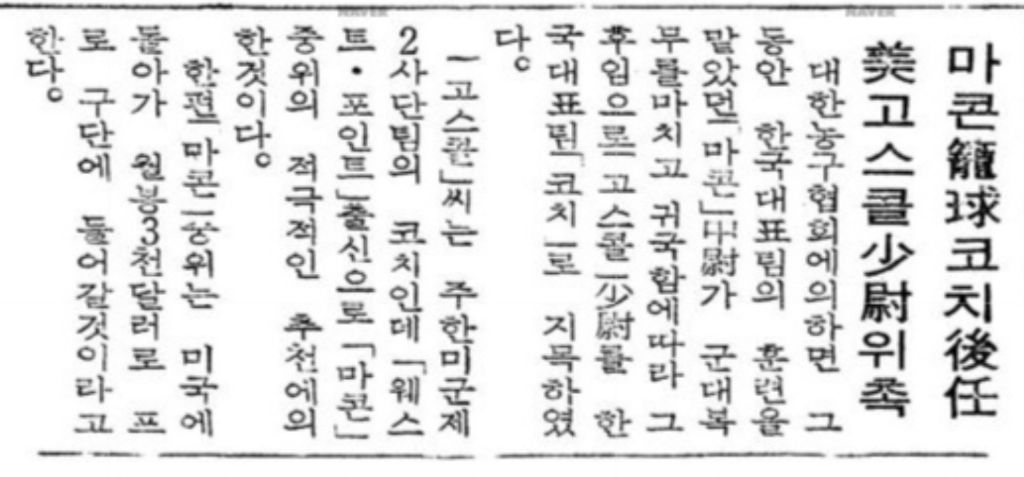 마콘籠球코치後任
美고스콜少尉위촉
대한농구협회에의하면 그
동안 한국대표팀의 훈련을
맡았던「마콘」中尉가 군대복
무를마치고 귀국함에따라 그
후임으로「고스콜」少尉를 한
국대표팀「코치」로 지목하였
다。
「고스콜」씨는 주한미군제
2사단팀의 코치인데 「웨스
트·포인트」출신으로「마콘」
중위의 적극적인 추천에의
한것이다。
한편「마콘」중위는 미국에
돌아가 월봉3천달러로 프
로 구단에 들어갈것이라고
한다。
NAVER
NAVER